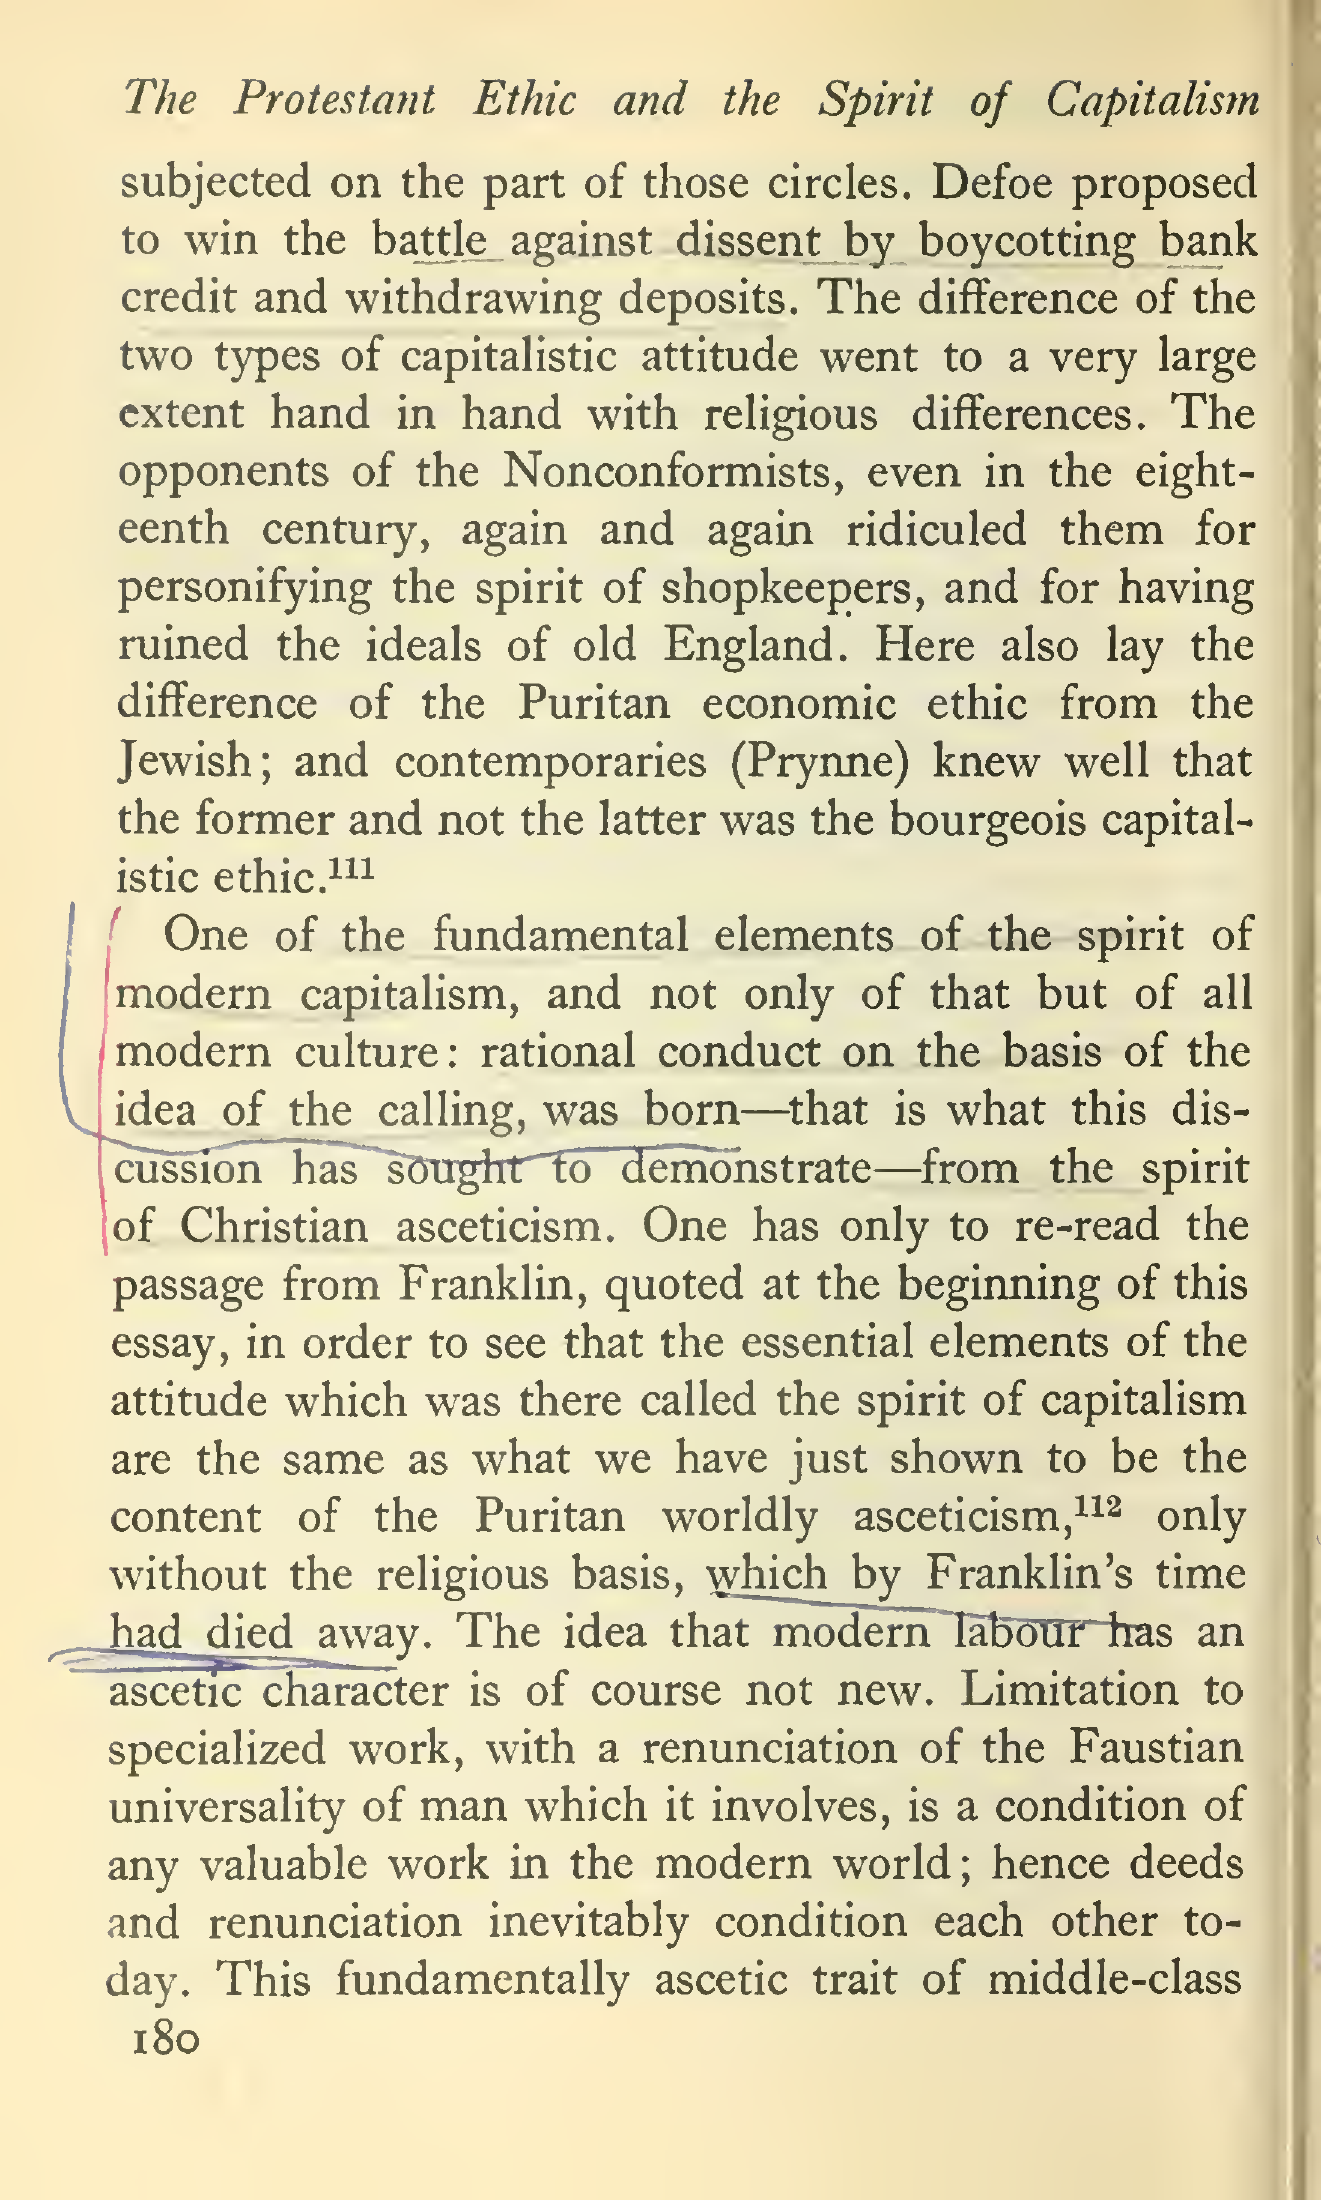 The Protestant Ethic and the Spirit of Capitalism
subjected on the part of those circles. Defoe proposed
to win the battle against dissent by boycotting bank
credit and withdrawing deposits. The difference of the
two types of capitalistic attitude went to a very large
extent hand in hand with religious differences. The
opponents of the Nonconformists, even in the eight-
eenth century, again and again ridiculed them for
personifying the spirit of shopkeepers, and for having
ruined the ideals of old England. Here also lay the
difference of the Puritan economic ethic from the
Jewish; and contemporaries (Prynne) knew well that
the former and not the latter was the bourgeois capital-
istic ethic.¹¹¹
One of the fundamental elements of the spirit of
modern capitalism, and not only of that but of all
modern culture: rational conduct on the basis of the
idea of the calling, was born—that is what this dis-
cussion has sought to demonstrate—from the spirit
of Christian asceticism. One has only to re-read the
passage from Franklin, quoted at the beginning of this
essay, in order to see that the essential elements of the
attitude which was there called the spirit of capitalism
are the same as what we have just shown to be the
content of the Puritan worldly asceticism,¹¹² only
without the religious basis, which by Franklin's time
had died away. The idea that modern labour has an
ascetic character is of course not new. Limitation to
specialized work, with a renunciation of the Faustian
universality of man which it involves, is a condition of
any valuable work in the modern world; hence deeds
and renunciation inevitably condition each other to-
day. This fundamentally ascetic trait of middle-class
180